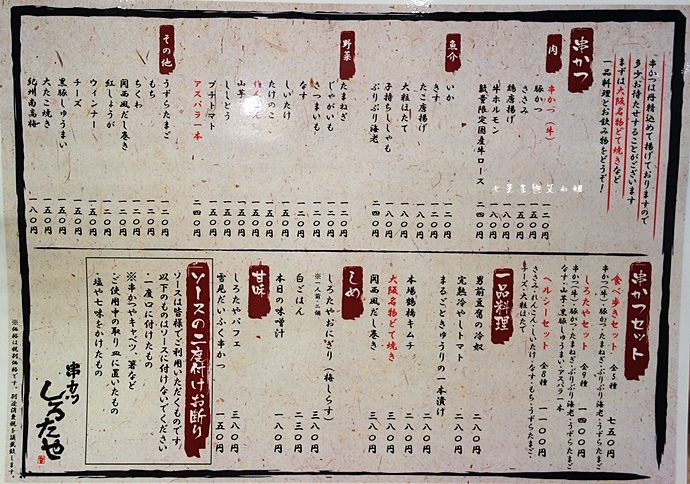 串かつは丹精込めて揚げておりますので
多少お待たせすることがございます
まずは大阪名物どて焼きなど
一品料理とお飲み物をどうぞ！
串かつ
肉
串かつ（牛） 一二〇円
豚かつ 一二〇円
ささみ 一五〇円
鶏唐揚げ 一五〇円
牛ホルモン 一八〇円
数量限定国産牛ロース 二四〇円
魚介
いか 一二〇円
きす
たこ唐揚げ 一八〇円
大粒ほたて 一八〇円
子持ちししゃも
ぷりぷり海老 二四〇円
野菜
たまねぎ 一二〇円
じゃがいも 一二〇円
さつまいも 一二〇円
なす 一二〇円
しいたけ 一五〇円
たけのこ
山芋
ししとう 一五〇円
プチトマト 一五〇円
アスパラ一本 二四〇円
その他
うずらたまご 一二〇円
もち 一二〇円
ちくわ 一二〇円
関西風だし巻き
紅しょうが
ウィンナー 一五〇円
チーズ 一五〇円
黒豚しゅうまい 一五〇円
大たこ焼き
紀州南高梅 一八〇円
串かつセット
食べ歩きセット 全5種 七五〇円
串かつ（牛）・豚かつ・たまねぎ・ぷりぷり海老・うずらたまご
しろたやセット 全9種 一四〇〇円
串かつ（牛）・豚かつ・たまねぎ・ぷりぷり海老・うずらたまご
なす・山芋・黒豚しゅうまい・アスパラ一本
ヘルシーセット 全8種 一一〇〇円
ささみ・れんこん・しいたけ・なす・もち・うずらたまご
チーズ・大粒ほたて
一品料理
男前豆腐の冷奴 二八〇円
完熟冷やしトマト 二八〇円
まるごときゅうりの一本漬け 二八〇円
本場鶴橋キムチ 二八〇円
大阪名物どて焼き 三八〇円
関西風だし巻き 三八〇円
しめ
しろたやおにぎり（梅しらす） 三八〇円
※一人前・二個
白ごはん 二三〇円
本日の味噌汁 一八〇円
甘味
しろたやパフェ 三八〇円
雪見だいふく串かつ 一五〇円
ソースの二度付けお断り
ソースは皆様でご利用いただくものです
以下のものはソースに付けないでください
・一度口に付けたもの
※串かつやキャベツ、箸など
・ご使用中の取り皿に置いたもの
・塩や七味をかけたもの
串かつ
しろたや
※価格は税別価格です。別途消費税を頂戴致します。